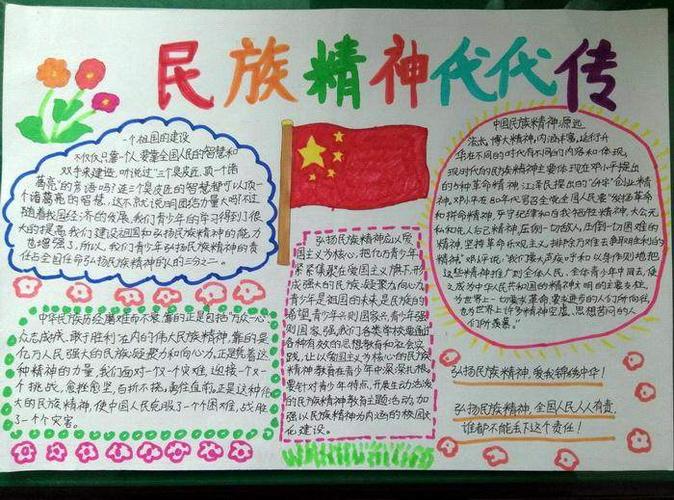 民族精神代代传
一个祖国的建设
不仅仅只靠一个人,要靠全国人民的智慧和
双手来建造,听说过"三个臭皮匠,顶一个诸
葛亮"的旁语吗?连三个臭皮匠的智慧都可以顶一
个诸葛亮的智慧,这不就说明团结力量大吗?不过
随着我国经济的发展,我们青少年的学习得到了很
大的提高,我们建设祖国和弘扬民族精神的能力
也增强了,所以,我们青少年弘扬民族精神的责任
占全国任命弘扬民族精神的人的三分之二。
中华民族历经磨难而不衰,靠的正是包把"万众一心
众志成城,敢于胜利"在内的伟大民族精神,靠的是
亿万人民强大的民族凝聚力和向心力。正是凭着这
种精神的力量,我们面对一次个灾难,迎接一次一
个挑战,愈挫愈坚,百折不挠,勇往直前。正是这种伟
大的民族精神,使中国人民克服了一个个困难,战胜
了一个个灾害。
弘扬民族精神应以爱
国主义为核心,把亿万青少年
紧紧集聚在爱国主义旗下,形
成强大的民族凝聚力向心力。
青少年是祖国的未来是民族的
希望,青少年兴则国家兴,青少年强
则国家强。我们各类学校要通过
各种有效的思想教育和社会实
践,让以爱国主义为核心的民族
精神教育在青少年中深深扎根。
要针对青少年特点,开展生动活泼
的民族精神教育主题活动,加
强以民族精神为内涵的校园文
化建设。
中国民族精神,源远
流长,博大精深,内涵丰富,延行升
华在不同的时代有不同的内容和体现。
现时代的民族精神主要体现在邓小平提出
的5种革命精神,江泽民提出的"64字"创业精
神。邓小平在80年代号召全党全国人民要"发扬革命
和拼命精神,严守纪律和自我牺牲精神,大公无
私和先人后己精神,压倒一切敌人、压倒一切困难的
精神,坚持革命乐观主义、排除万难去争取胜利的
精神"邓评说,"我们要大声疾呼和以身作则地把
这些精神推广到全体人民、全体青少年中间去,使
之成为中华人民共和国的精神文明的主要支柱,
为世界上一切要求革命、要求进步的人们所向往,
也为世界上许多精神空虚、思想苦闷的人
们所羡慕。"
弘扬民族精神,爱我锦绣中华!
弘扬民族精神,全国人民人人有责,
谁都不能丢下这个责任!